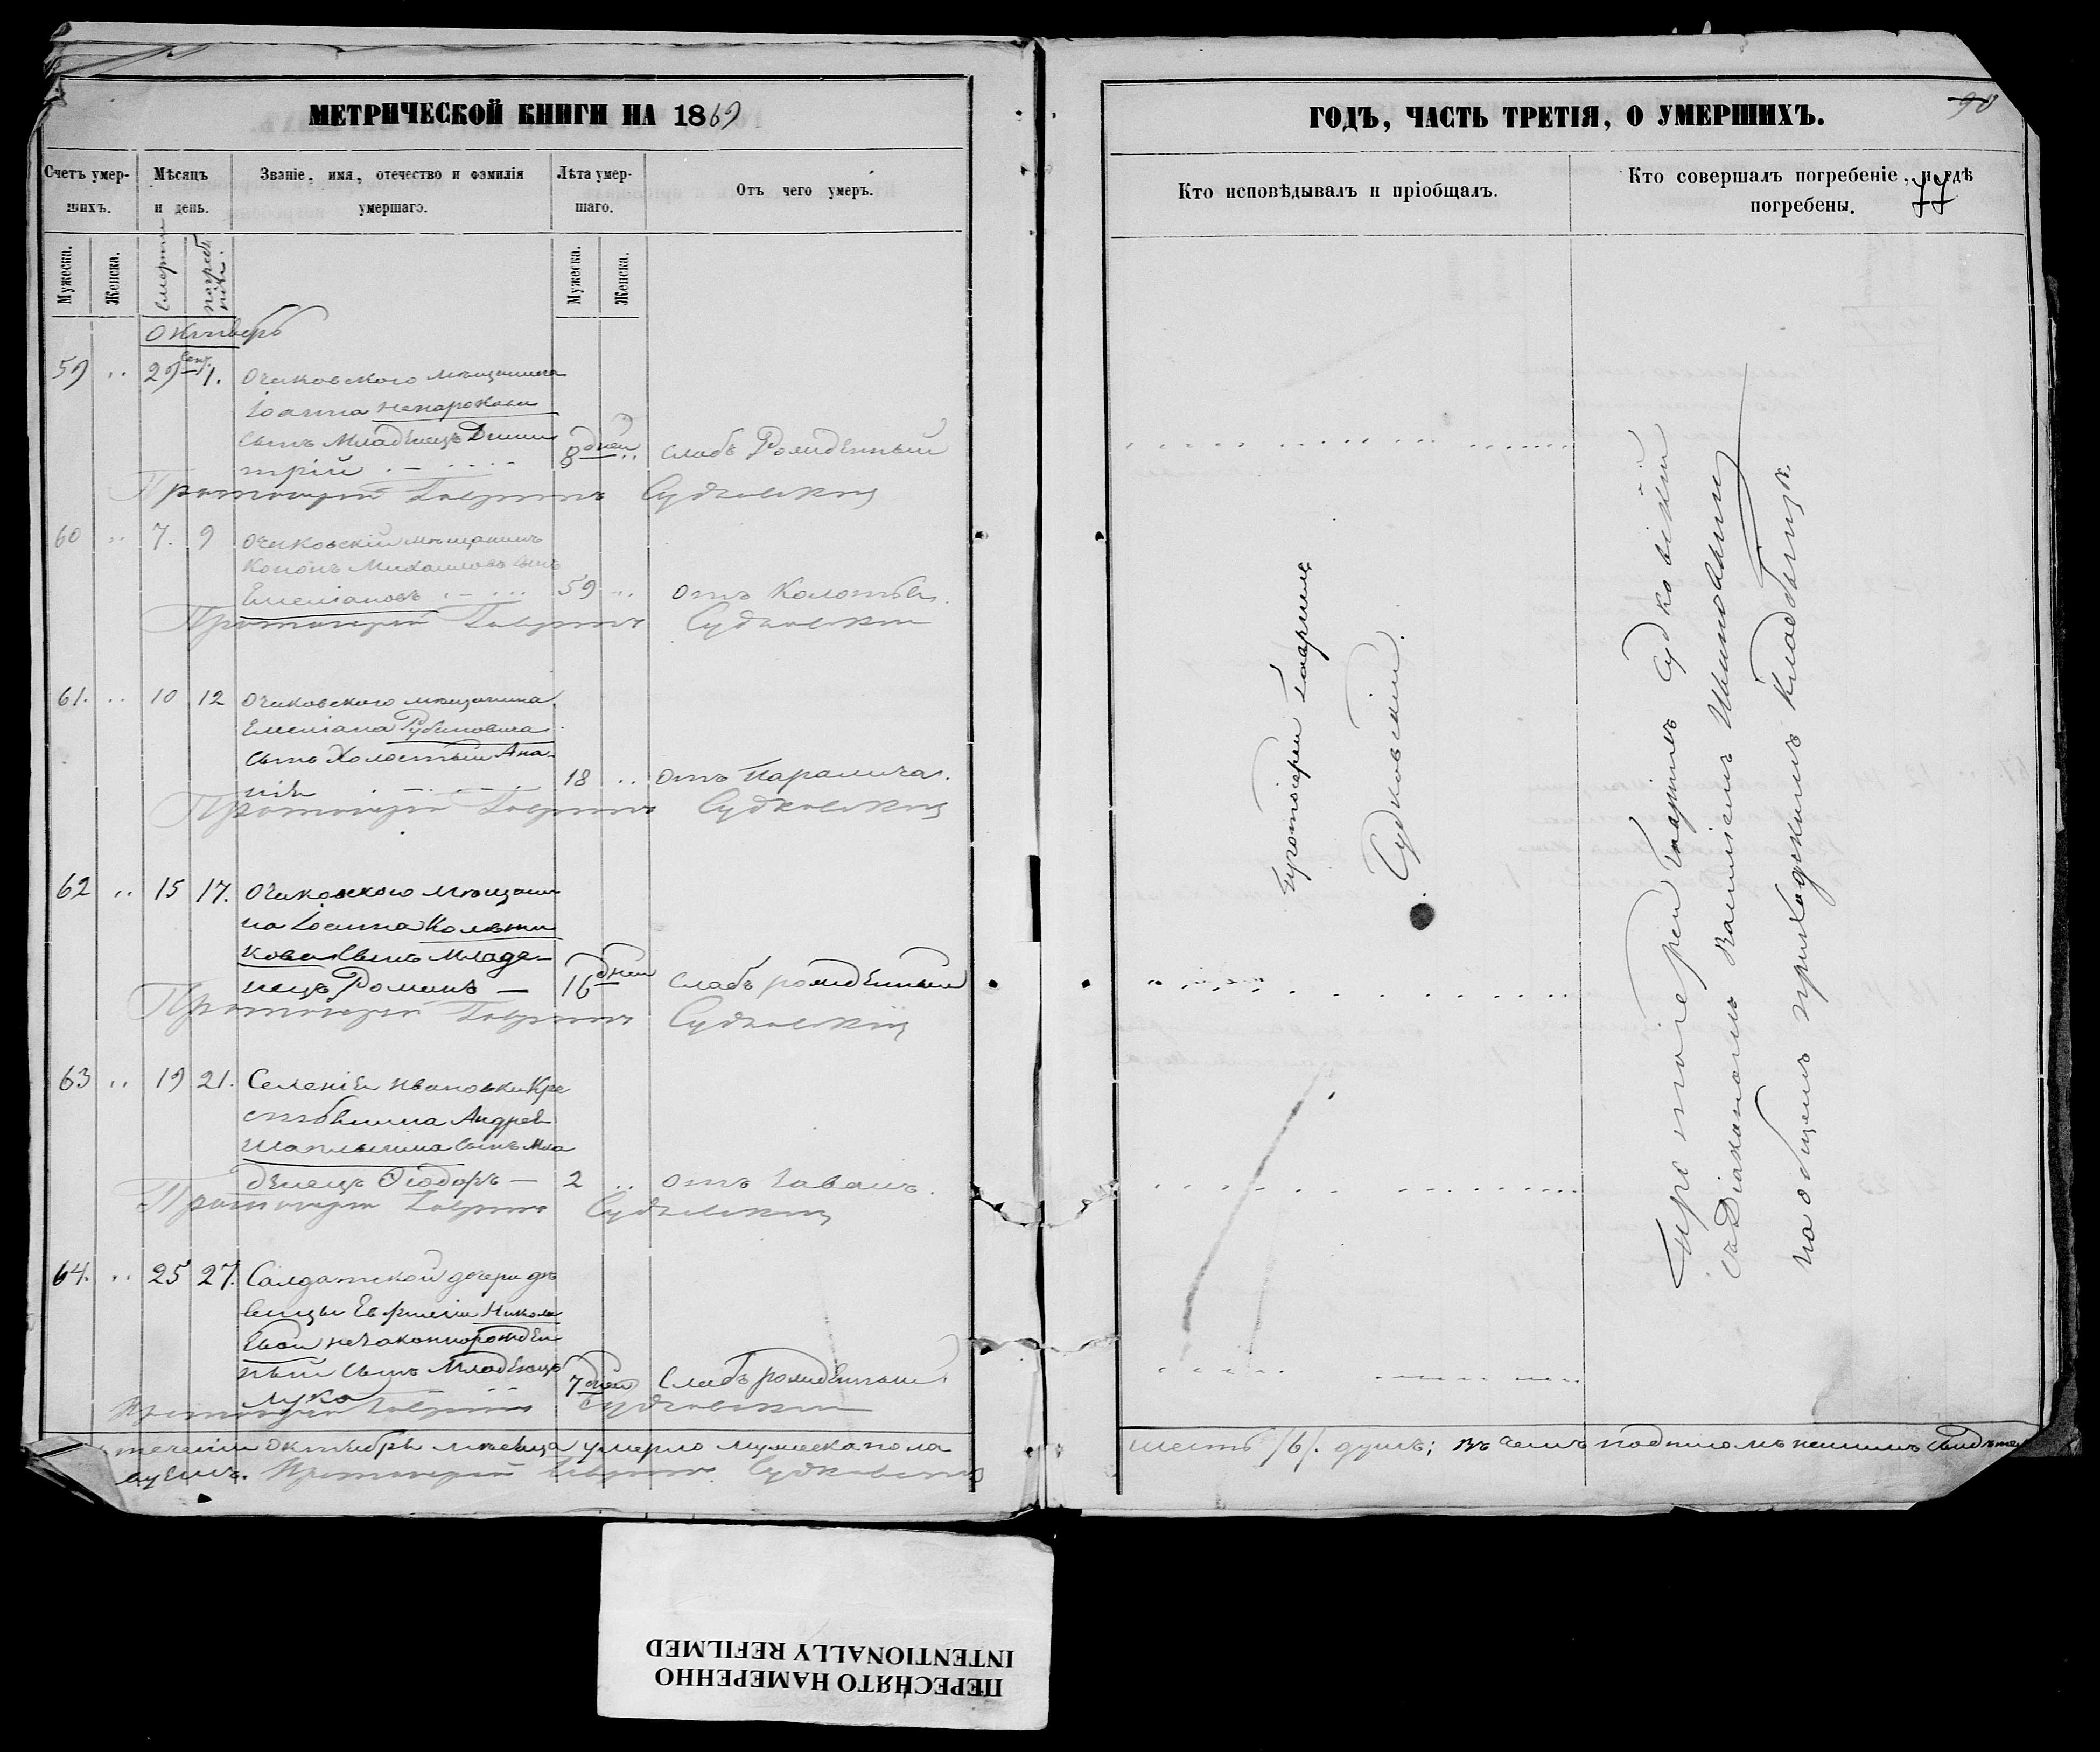 МЕТРИЧЕСКОЙ КНИГИ НА 1869
Счетъ умер-
шихъ.
Мѣсяцъ
и день.
Званіе, имя, отечество и фамилія
умершаго.
Лѣта умер-
шаго.
Отъ чего умеръ.
Мужеска.
Женска.
Смерти
погреб
нія.
Мужеска.
Женска.
октябрь
59 .. 29 Сен. 1. Очаковскаго мѣщанина
Іоанна Ненарокова
сынъ Младенецъ Дими
трій 8 дней .. слабъ Рожденный
Протоіерей Гавріилъ Судковскій
60 .. 7. 9 Очаковскій мѣщанинъ
Кононъ Михаиловъ сынъ
Емеліановъ 59 .. отъ Колотья.
Протоіерей Гавріилъ Судковскій
61. .. 10 12 Очаковскаго мѣщанина
Емеліана Рубановича
сынъ Холостый Ана-
нія 18 .. отъ Паралича.
Протоіерей Гавріилъ Судковскій
62 .. 15 17. Очаковскаго мѣщани
на Іоанна
кова Сынъ Младе-
нецъ Романъ — 16 дней слабъ рожденный
Протоіерей Гавріилъ Судковскій
63 .. 19 21. Селенія Ивановки Кре
стьянина Андрея
Шаплыгина сынъ Мла
денецъ Ѳеодоръ — 2 .. отъ
Протоіерей Гавріилъ Судковскій
64. .. 25 27. Солдатской дочери дѣ
вицы Николա
евой незаконнорожден
ный сынъ Младенецъ
Лука 7 дней Слабъ рожденный.
Протоіерей Гавріилъ Судковскій
теченіи Октября мѣсяца умерло мужеска пола
Протоіерей Гавріилъ Судковскій
ГОДЪ, ЧАСТЬ ТРЕТІЯ, О УМЕРШИХЪ.
90
77
Кто исповѣдывалъ и пріобщалъ.
Кто совершалъ погребеніе, и гдѣ
погребены.
Протоіерей Гавріилъ
Судковскій.
Протоіерей Гавріилъ Судковскій
съ Діакономъ Василіемъ
на общемъ приходскомъ кладбищѣ.
шесть /6/. душъ; въ чемъ подписомъ нашимъ
ПЕРЕСНЯТО НАМЕРЕННО
INTENTIONALLY REFILMED